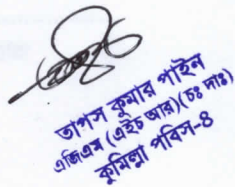 তাপস কুমার পাইন
এজিএম (এইচ আর)(চঃ দাঃ)
কুমিল্লা পবিস-৪